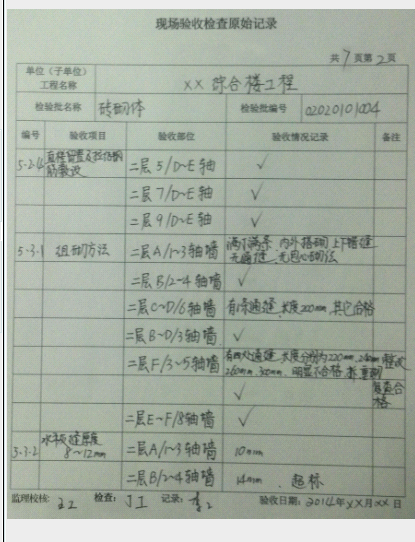 现场验收检查原始记录
共7页第2页
单位（子单位）
工程名称
XX 综合楼工程
检验批名称 砖砌体 检验批编号 02020101004
编号 验收项目 验收部位 验收情况记录 备注
5.2.4 直槎留置及拉结钢筋敷设 二层5/D~E轴 √
二层7/D~E轴 √
二层9/D~E轴 √
5.3.1 组砌方法 二层A/1~3轴墙 满丁满条、内外搭砌 上下错缝
无通缝、无包心砌法
二层B/2~4轴墙 √
二层C~D/6轴墙 有1条通缝、长度200mm、其它合格
二层B~D/3轴墙 √
二层F/3~5轴墙 有四处通缝、长度分别为220mm、240mm
260mm、300mm、明显不合格
√ 复查合格
二层E~F/8轴墙 √
5.3.2 水平灰缝厚度
8~12mm
二层A/1~3轴墙 10mm
二层B/2~4轴墙 14mm、超标
监理校核: 检查: JI 记录: 验收日期: 2014年XX月XX日